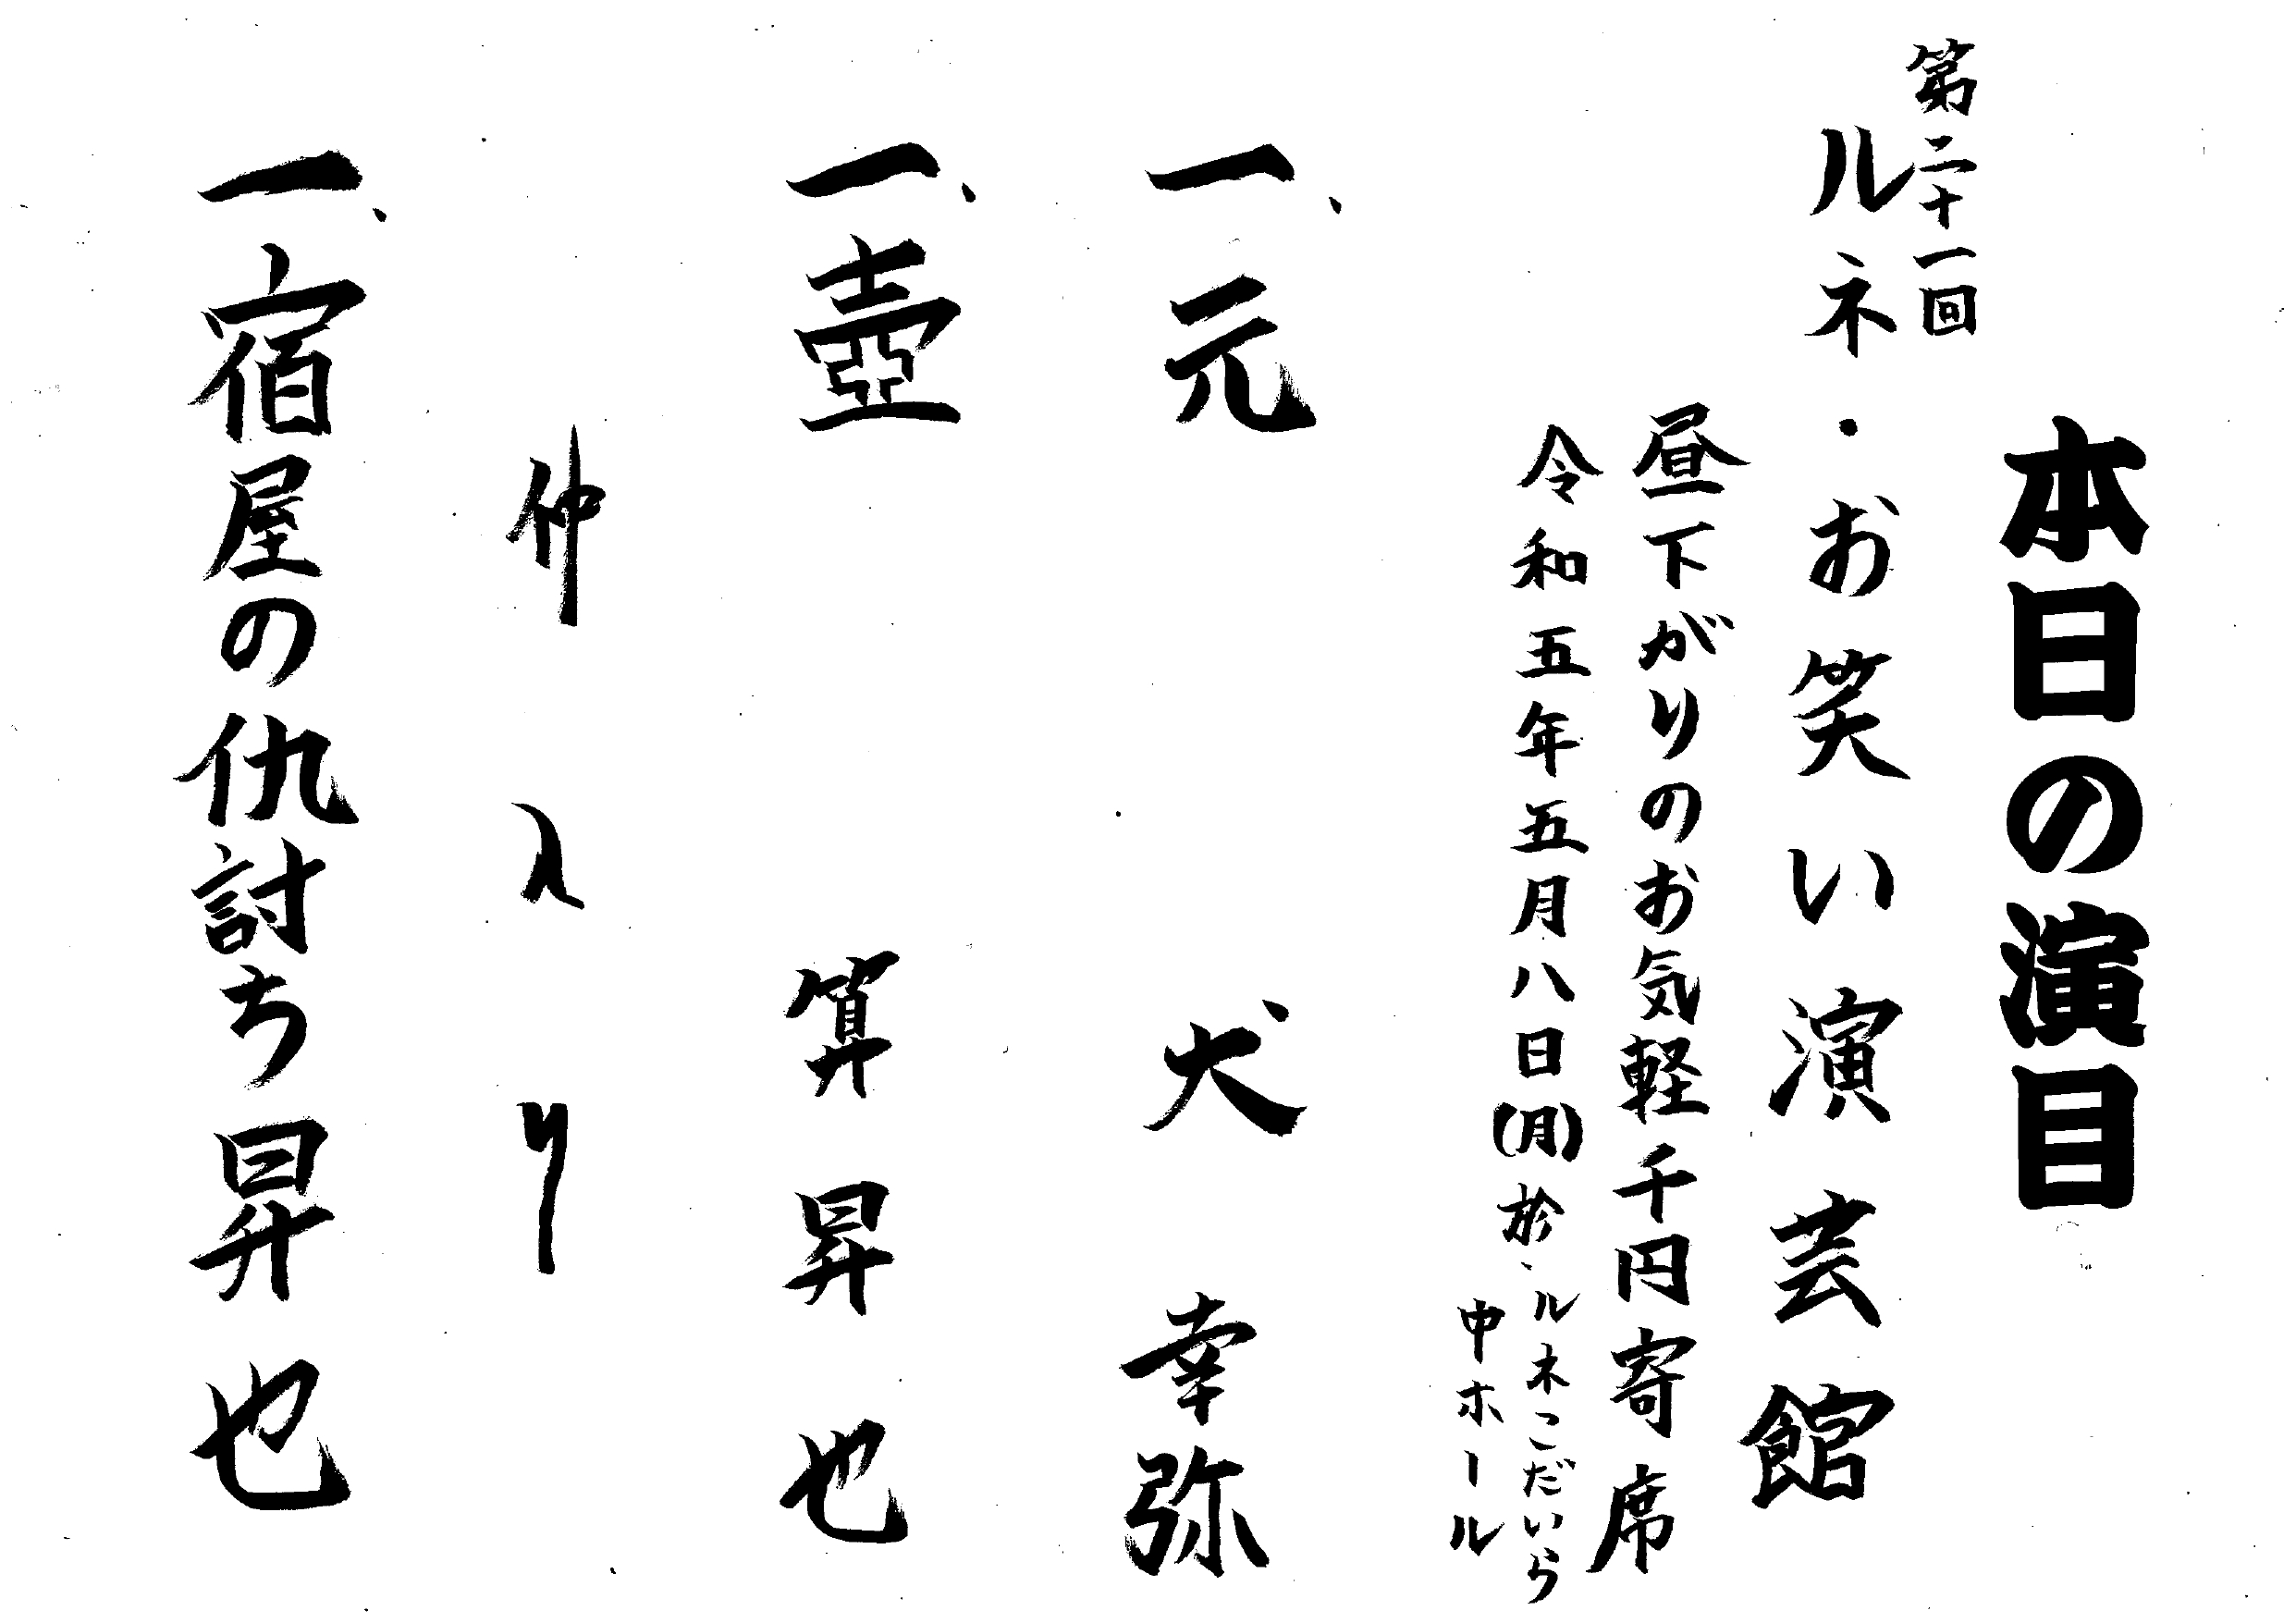 本日の演目
第二十一回
ルネ・お笑い演芸館
昼下がりのお気軽千円寄席
令和五年五月八日(月)於・ルネこだいら
中ホール
一、元　犬　幸弥
一、壺算　昇也
仲入り
一、宿屋の仇討ち　昇也